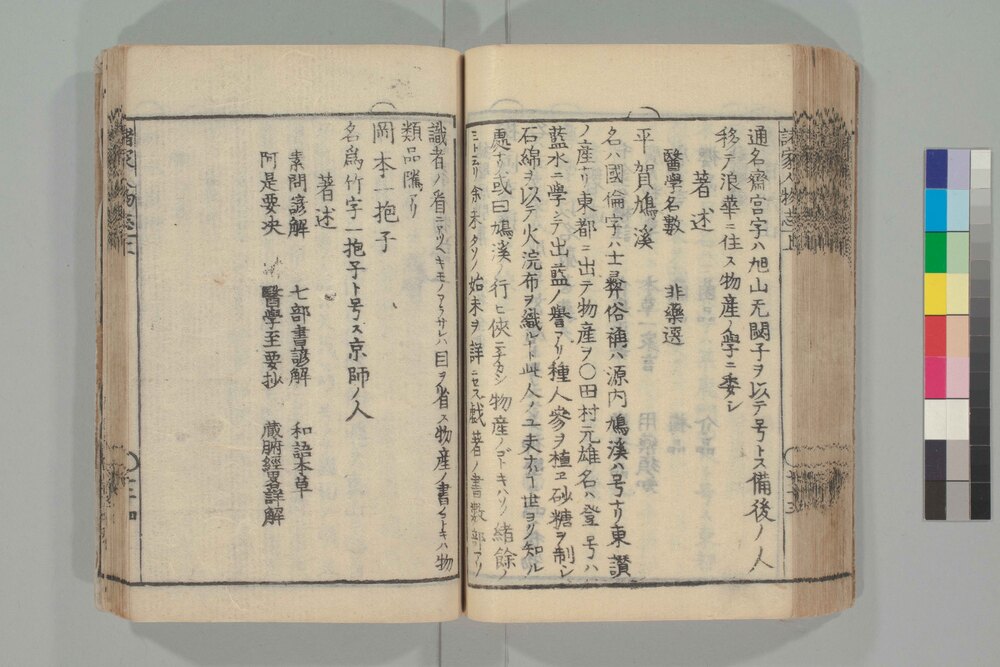 諸家人物志上
通名齋宮字ハ旭山无闕子ヲ以テ号トス備後ノ人
移テ浪華ニ住ス物産ノ學ニ委シ
著述
醫學名數　非藥選
平賀鳩溪
名ハ國倫字ハ士彝俗稱ハ源内鳩溪ハ号ナリ東讃
ノ産ナリ東都ニ出テ物産ヲ〇田村元雄名ハ登号ハ
藍水ニ學ンテ出藍ノ譽アリ種人參ヲ植ヱ砂糖ヲ制シ
石綿ヲ以テ火浣布ヲ織ル此人ノ工夫ナリ世ヨク知ル
處ナリ或曰鳩溪ノ行ヒ侠ニチカシ物産ノゴトキハソノ緒餘ノ
ミト云リ余未タソノ始末ヲ詳ニセズ戯著ノ書數部アリ
識者ハ省ニツヘキモノアラサレハ目ヲ省ス物産ノ書ノコトキハ物
類品隲アリ
岡本一抱子
名爲竹字一抱子ト号ス京師ノ人
著述
素問諺解　七部書諺解　和語本草
阿是要决　醫學至要抄　蔵腑經畧詳解